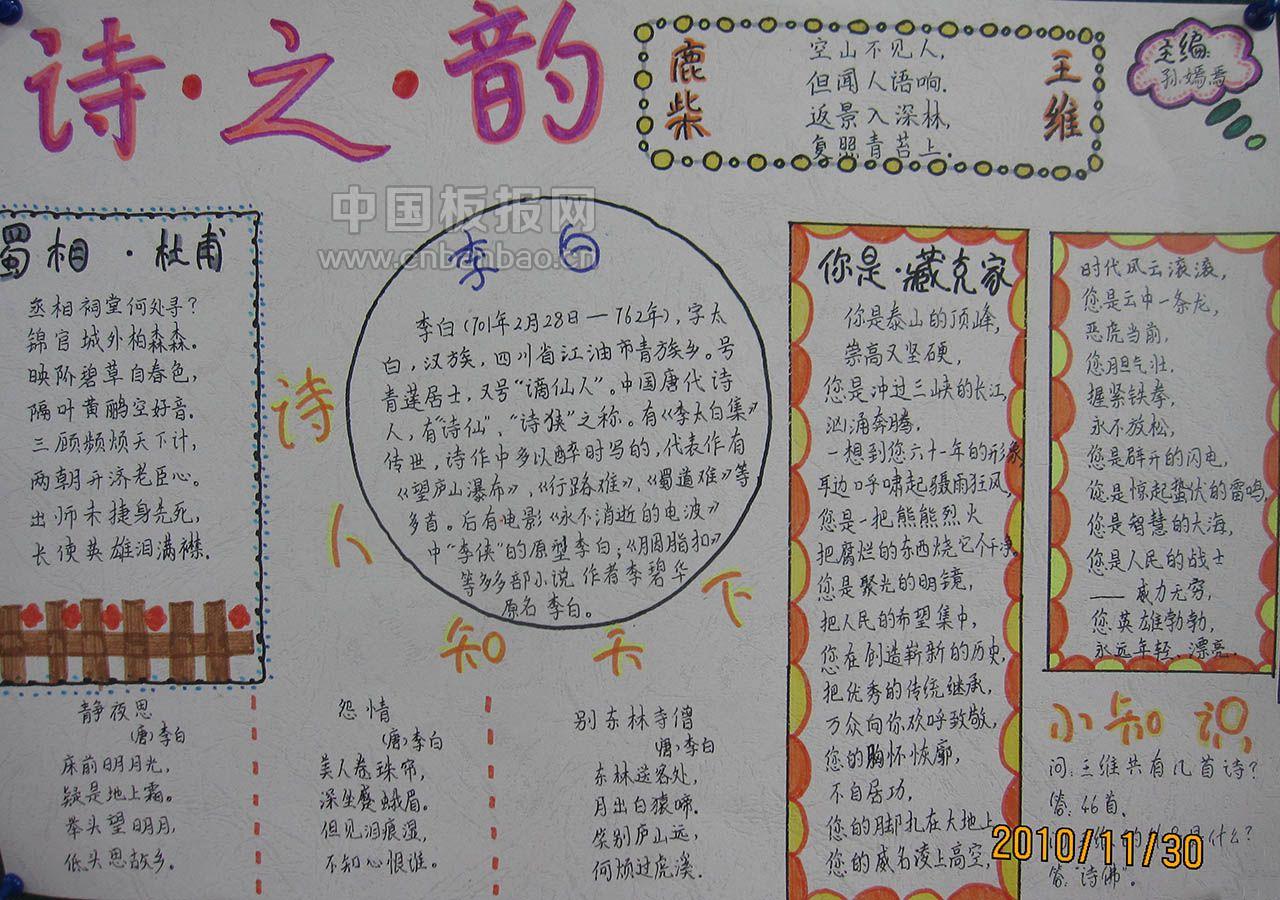 诗·之·韵
鹿柴
空山不见人,
但闻人语响.
返景入深林,
复照青苔上.
王维
主编:
孙嫣
中国板报网
www.cnbanbao.cn
蜀相·杜甫
丞相祠堂何处寻?
锦官城外柏森森.
映阶碧草自春色,
隔叶黄鹂空好音.
三顾频烦天下计,
两朝开济老臣心。
出师未捷身先死,
长使英雄泪满襟.
诗人知天下
李白
李白(701年2月28日—762年),字太
白,汉族,四川省江油市青莲乡。号
青莲居士,又号“谪仙人”。中国唐代诗
人,有“诗仙”、“诗侠”之称。有《李太白集》
传世,诗作中多以醉时写的,代表作有
《望庐山瀑布》、《行路难》、《蜀道难》等
多首。后有电影《永不消逝的电波》
中“李侠”的原型李白;《胭脂扣》
等多多部小说 作者李碧华
原名 李白。
你是·臧克家
你是泰山的顶峰,
崇高又坚硬,
您是冲过三峡的长江,
汹涌奔腾,
一想到您六十一年的形象,
耳边呼啸起骤雨狂风,
您是一把熊熊烈火
把腐烂的东西烧它个干净.
您是聚光的明镜,
把人民的希望集中,
您在创造崭新的历史,
把优秀的传统继承,
万众向你欢呼致敬,
您的胸怀恢廓,
不自居功,
您的脚扎在大地上
您的威名凌上高空,
时代风云滚滚,
您是云中一条龙,
恶虎当前,
您胆气壮,
握紧铁拳,
永不放松,
您是辟开的闪电,
您是惊起蛰伏的雷鸣,
您是智慧的大海,
您是人民的战士
——威力无穷,
您英雄勃勃,
永远年轻、漂亮.
静夜思
(唐)李白
床前明月光,
疑是地上霜。
举头望明月,
低头思故乡.
怨情
(唐)李白
美人卷珠帘,
深坐蹙蛾眉。
但见泪痕湿,
不知心恨谁。
别东林寺僧
(唐)李白
东林送客处,
月出白猿啼.
笑别庐山远,
何烦过虎溪.
小知识
问:王维共有几首诗?
答:46首.
是什么?
答:“诗佛”.
2010/11/30